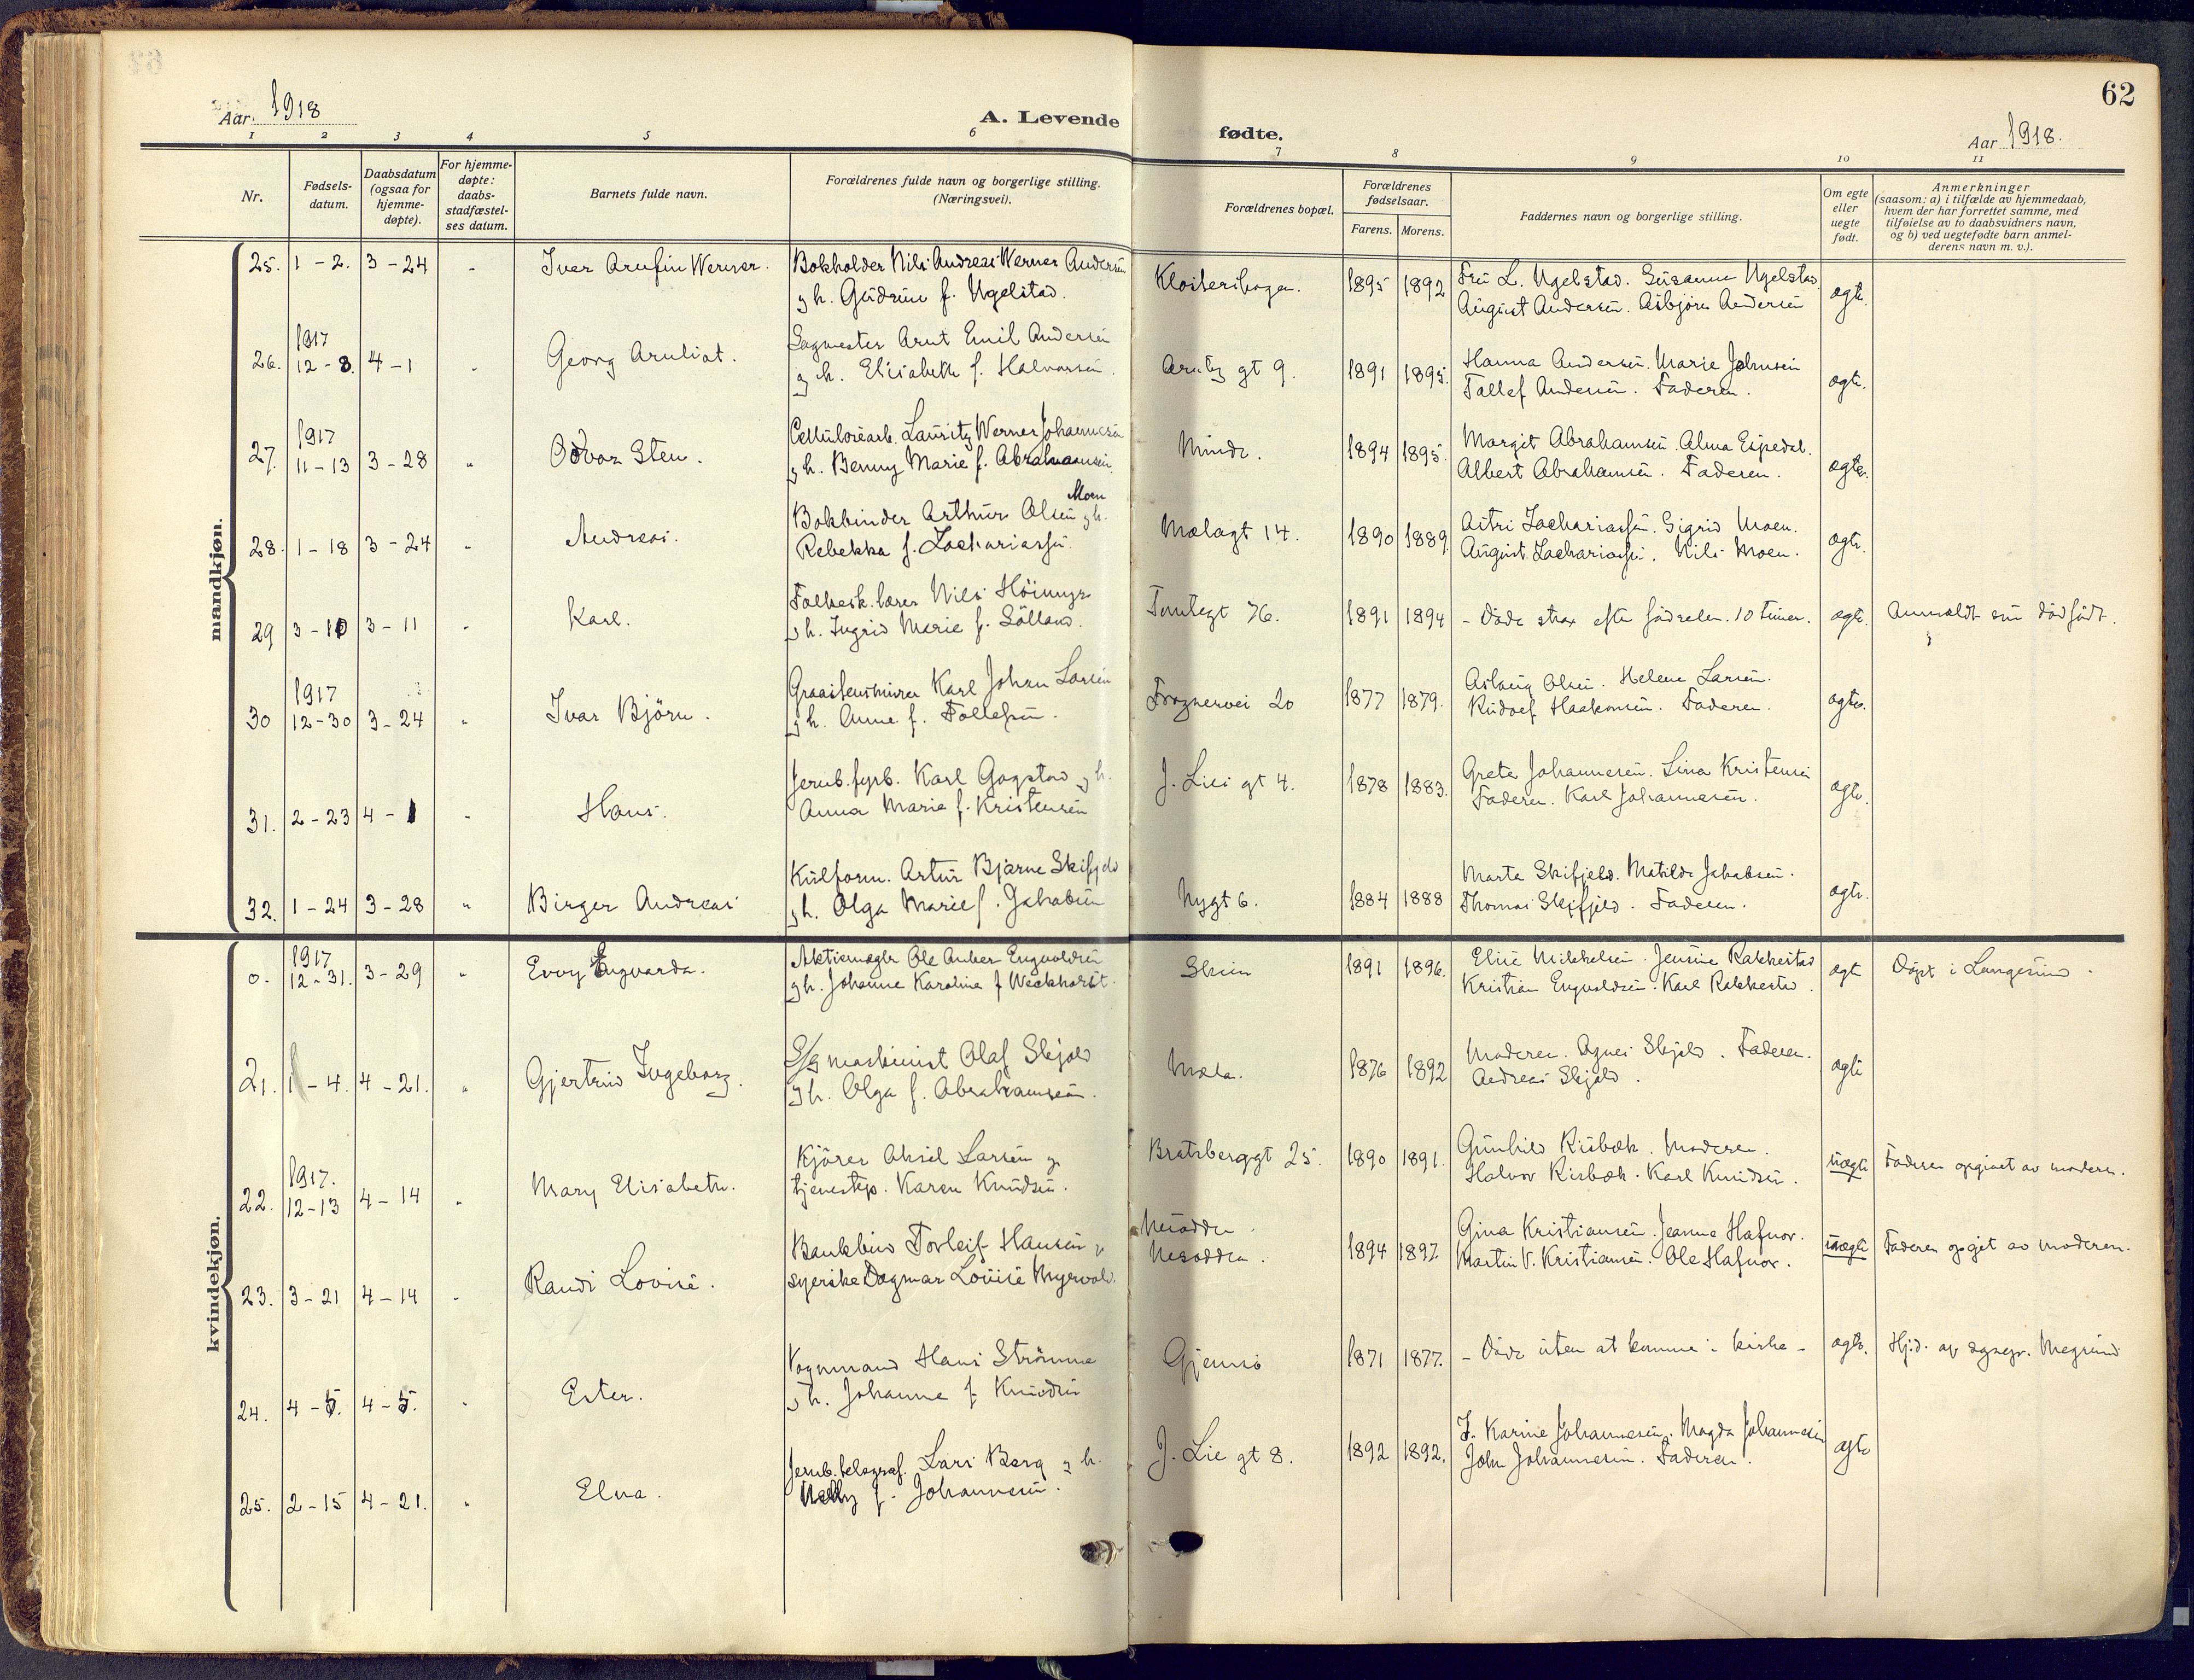 62
Aar. 1918
A. Levende
fødte.
Aar 1918.
1 2 3 4 5 6 7 8 9 10 11
Nr.
Fødsels-
datum.
Daabsdatum
(ogsaa for
hjemme-
døpte).
For hjemme-
døpte:
daabs-
stadfæstel-
ses datum.
Barnets fulde navn.
Forældrenes fulde navn og borgerlige stilling.
(Næringsvei).
Forældrenes bopæl.
Forældrenes
fødselsaar.
Farens. Morens.
Faddernes navn og borgerlige stilling.
Om egte
eller
uegte
født.
Anmerkninger
(saasom: a) i tilfælde av hjemmedaab,
hvem der har forrettet samme, med
tilføielse av to daabsvidners navn,
og b) ved uegtefødte barn anmel-
derens navn m. v.).
mandkjøn.
25. 1 - 2. 3 - 24 " Iver Arnfin Werner. Bokholder Nils Andreas Werner Andersen
g h. Gudrun f. Ugelstad. Klosterskogen. 1895 1892 Fru L. Ugelstad. Susanna Ugelstad.
August Andersen. Asbjörn Andersen ægte.
26. 1917
12 - 8. 4 - 1 " Georg Arnliot. Sagmester Arnt Emil Andersen
g h. Elisabeth f. Halvorsen. gt 9. 1891 1895. Hanna Andersen. Marie Johnsen
Tallef Andersen. Faderen. ægte.
27. 1917
11 - 13 3 - 28 " Oddvar Sten. Cellulosearb. Lauritz Werner Johannesen
g h. Benny Marie f. Abrahamsen. Minde. 1894 1895. Margit Abrahamsen. Alma Espedal.
Albert Abrahamsen. Faderen. ægte.
28. 1 - 18 3 - 24 " Andreas. Bokbinder Arthur Olsen Moen g h.
Rebekka f. Zachariassen. Mælagt 14. 1890 1889. Astri Zachariassen. Sigrid Moen.
August Zachariassen. Nils Moen. ægte.
29 3 - 10 3 - 11 " Karl. Folkesk. lærer Nils Höimyr
g h. Ingrid Marie f. Sölland. Tomtegt 76. 1891 1894 - Döde strax efter födselen. 10 timer. ægte. Anmeldt som dödfödt.
30 1917
12 - 30 3 - 24 " Ivar Björn. Graastensmurer Karl Johan Larsen
g h. Anne f. Tollefsen. Frognervei 20 1877 1879. Aslaug Olsen. Helene Larsen.
Rudolf Haakonsen. Faderen. ægte.
31. 2 - 23 4 - 1 " Hans. Jernb. fyrb. Karl Gogstad g h.
Anna Marie f. Kristensen J. Lies gt 4. 1878 1883. Grete Johannesen. Lina Kristensen
Faderen. Karl Johannesen. ægte.
32. 1 - 24 3 - 28 " Birger Andreas Kulform. Artur Bjarne Skifjeld
g h. Olga Marie f. Jakobsen Nygt 6. 1884 1888 Marta Skifjeld. Matilde Jakobsen.
Thomas Skifjeld. Faderen. ægte.
kvindekjøn.
0. 1917
12 - 31. 3 - 29 " Evvy Engvarda. Aktiemægler Ole Anker Engvoldsen
g h. Johanne Karoline f Weckhorst. Skien 1891 1896. Elise Mikkelsen. Jensine Rakkestad
Kristian Engvoldsen. Karl Rakkestad. ægte Döpt i Langesund.
21. 1 - 4. 4 - 21. " Gjertrud Ingeborg. D/S maskinist Olaf Skjold
g h. Olga f. Abrahamsen. Mæla. 1876 1892 Moderen. Agnes Skjold. Faderen.
Andreas Skjold. ægte
22. 1917.
12-13 4 - 14 " Mary Elisabeth. Kjörer Aksel Larsen g
tjenestep. Karen Knudsen. Bratsberggt 25. 1890 1891. Gunhild Risbæk. Moderen.
Halvor Risbæk. Karl Knudsen. uægte Faderen opgivet av moderen.
23. 3 - 21 4 - 14 " Randi Lovise. Bankbud Torleif Hansen g
syerske Dagmar Louise Myrvold. Nesodden.
Nesodden. 1894 1897 Gina Kristiansen. Jeanna Hafnor.
Martin V. Kristiansen. Ole Hafnor. uægte Faderen opgit av moderen.
24. 4 - 5. 4 - 5. " Ester. Vognmand Hans Strömme
g h. Johanne f. Knudsen Gjemsö 1871 1877. - Döde uten at komme i kirke - ægte. Hj.d. av sgnepr. Megrund
25. 2 - 15 4 - 21. " Elna. Jernb. telegraf. Lars Berg g h.
Nelly f. Johannesen. J. Lie gt 8. 1892 1892. F. Karine Johannesen. Magda Johannesen
John Johannesen. Faderen. ægte